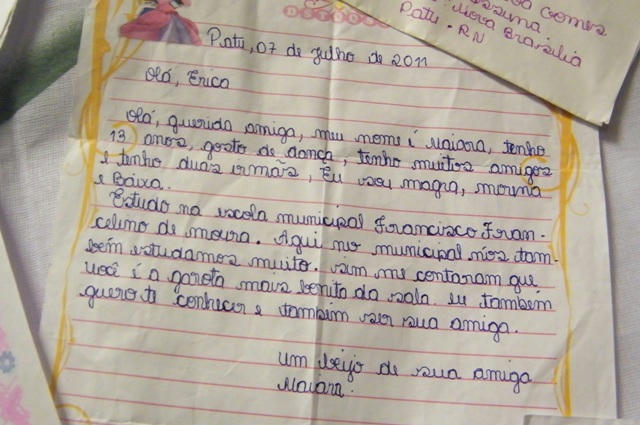 Gomes
Nova Brasilia
Patu - RN
Patu, 07 de Julho de 2011
Olá, Erica
Olá, querida amiga, meu nome é Maiara, tenho
13 anos, gosto de dança, tenho muitos amigos
e tenho duas irmãs, Eu sou magra, morena
e Baixa.
Estudo na escola municipal Francisco Fran-
celino de moura. Aqui no municipal nós tam-
bém estudamos muito. vim me contaram que
você é a garota mais bonita da sala. eu também
quero te conhecer e também ser sua amiga.
um beijo de sua amiga
Maiara.